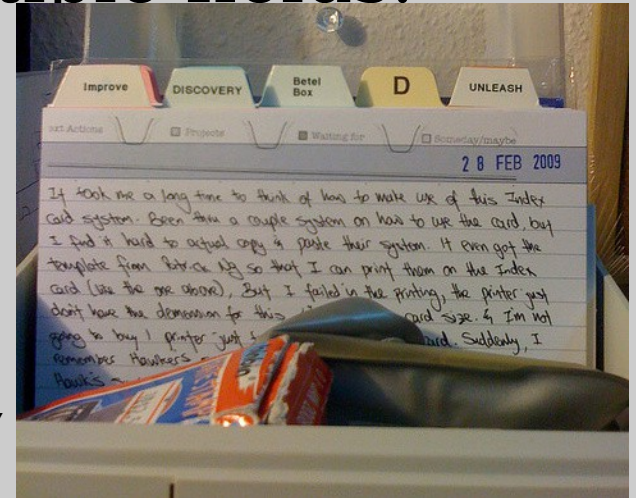 Improve
DISCOVERY
Betel
Box
D
UNLEASH
ext Actions Projects Waiting for Someday/maybe
28 FEB 2009
It took me a long time to think of how to make use of this Index
card system. Been thru a couple system on how to use the card, but
I find it hard to actual copy & paste their system. It even got the
template from Patrick Ng so that I can print them on the Index
card (like the one above), But I failed in the printing, the printer just
don't have the demension for this card size. & I'm not
going to buy 1 printer just Suddenly, I
remember Hawkers
Hawk's